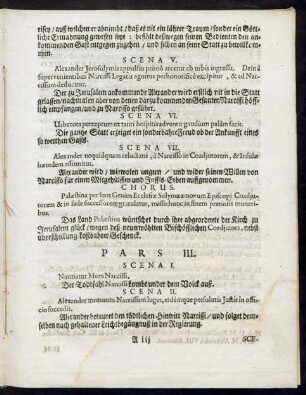 risey/ auß welchen er abnimbt/ daß es nit ein lährer Traum/ sonder ein Gött-
liche Ermahnung gewesen seye; befihlt deßwegen seinen Bedienten den an-
kommenden Gast entgegen zugehen/ und selben an seiner Statt zu bewillkom-
men.
SCENA V.
Alexander Jerosolymis appulsus primò arcetur ab urbis ingressu. Dein à
supervenientibus Narcissi Legatis agnitus perhonorificè excipitur, & ad Nar-
cissum deducitur.
Der zu Jerusalem ankommende Alexander wird erstlich nit in die Statt
gelassen/ nachmalen aber von denen darzu kommenden Gesandten Narcissi höff-
lich empfangen/ und zu Narcisso geführt.
SCENA VI.
Urbs tota perceptum ex tanti hospitis adventu gaudium palàm facit.
Die gantze Statt erzeiget ein sonderbahre Freud ob der Ankunfft eines
so werthen Gasts.
SCENA VII.
Alexander nequidquam reluctans, à Narcisso in Coadjutorem, & Infulæ
hæredem assumitur.
Alexander wird/ wiewolen ungern/ und wider seinen Willen von
Narcisso für einen Mitgehülffen und Inffels-Erben auffgenommen.
CHORUS.
Palæstina per suos Genios Ecclesiæ Solymæ novum Episcopi Coadju-
torem & in sede successorem gratulatur, missis hunc in finem pretiosis muneri-
bus.
Das Land Palæstina wünschet durch ihre abgeordnete der Kirch zu
Jerusalem glück/ wegen deß neuerwöhlten Bischöfflichen Coadjutors, nebst
überschickung kostbahrer Geschenck.
PARS III.
SCENA I.
Nuntiatur Mors Narcissi.
Der Todtfahl Narcissi kombt under dem Volck auß.
SCENA II.
Alexander mortuum Narcissum luget, eidemque persolutis Justis in offi-
cio succedit.
Alexander betauret den tödtlichen Hintritt Narcissi, und folget dem-
selben nach gehaltener Leichbegängnuß in der Regierung.
A iij SCE-